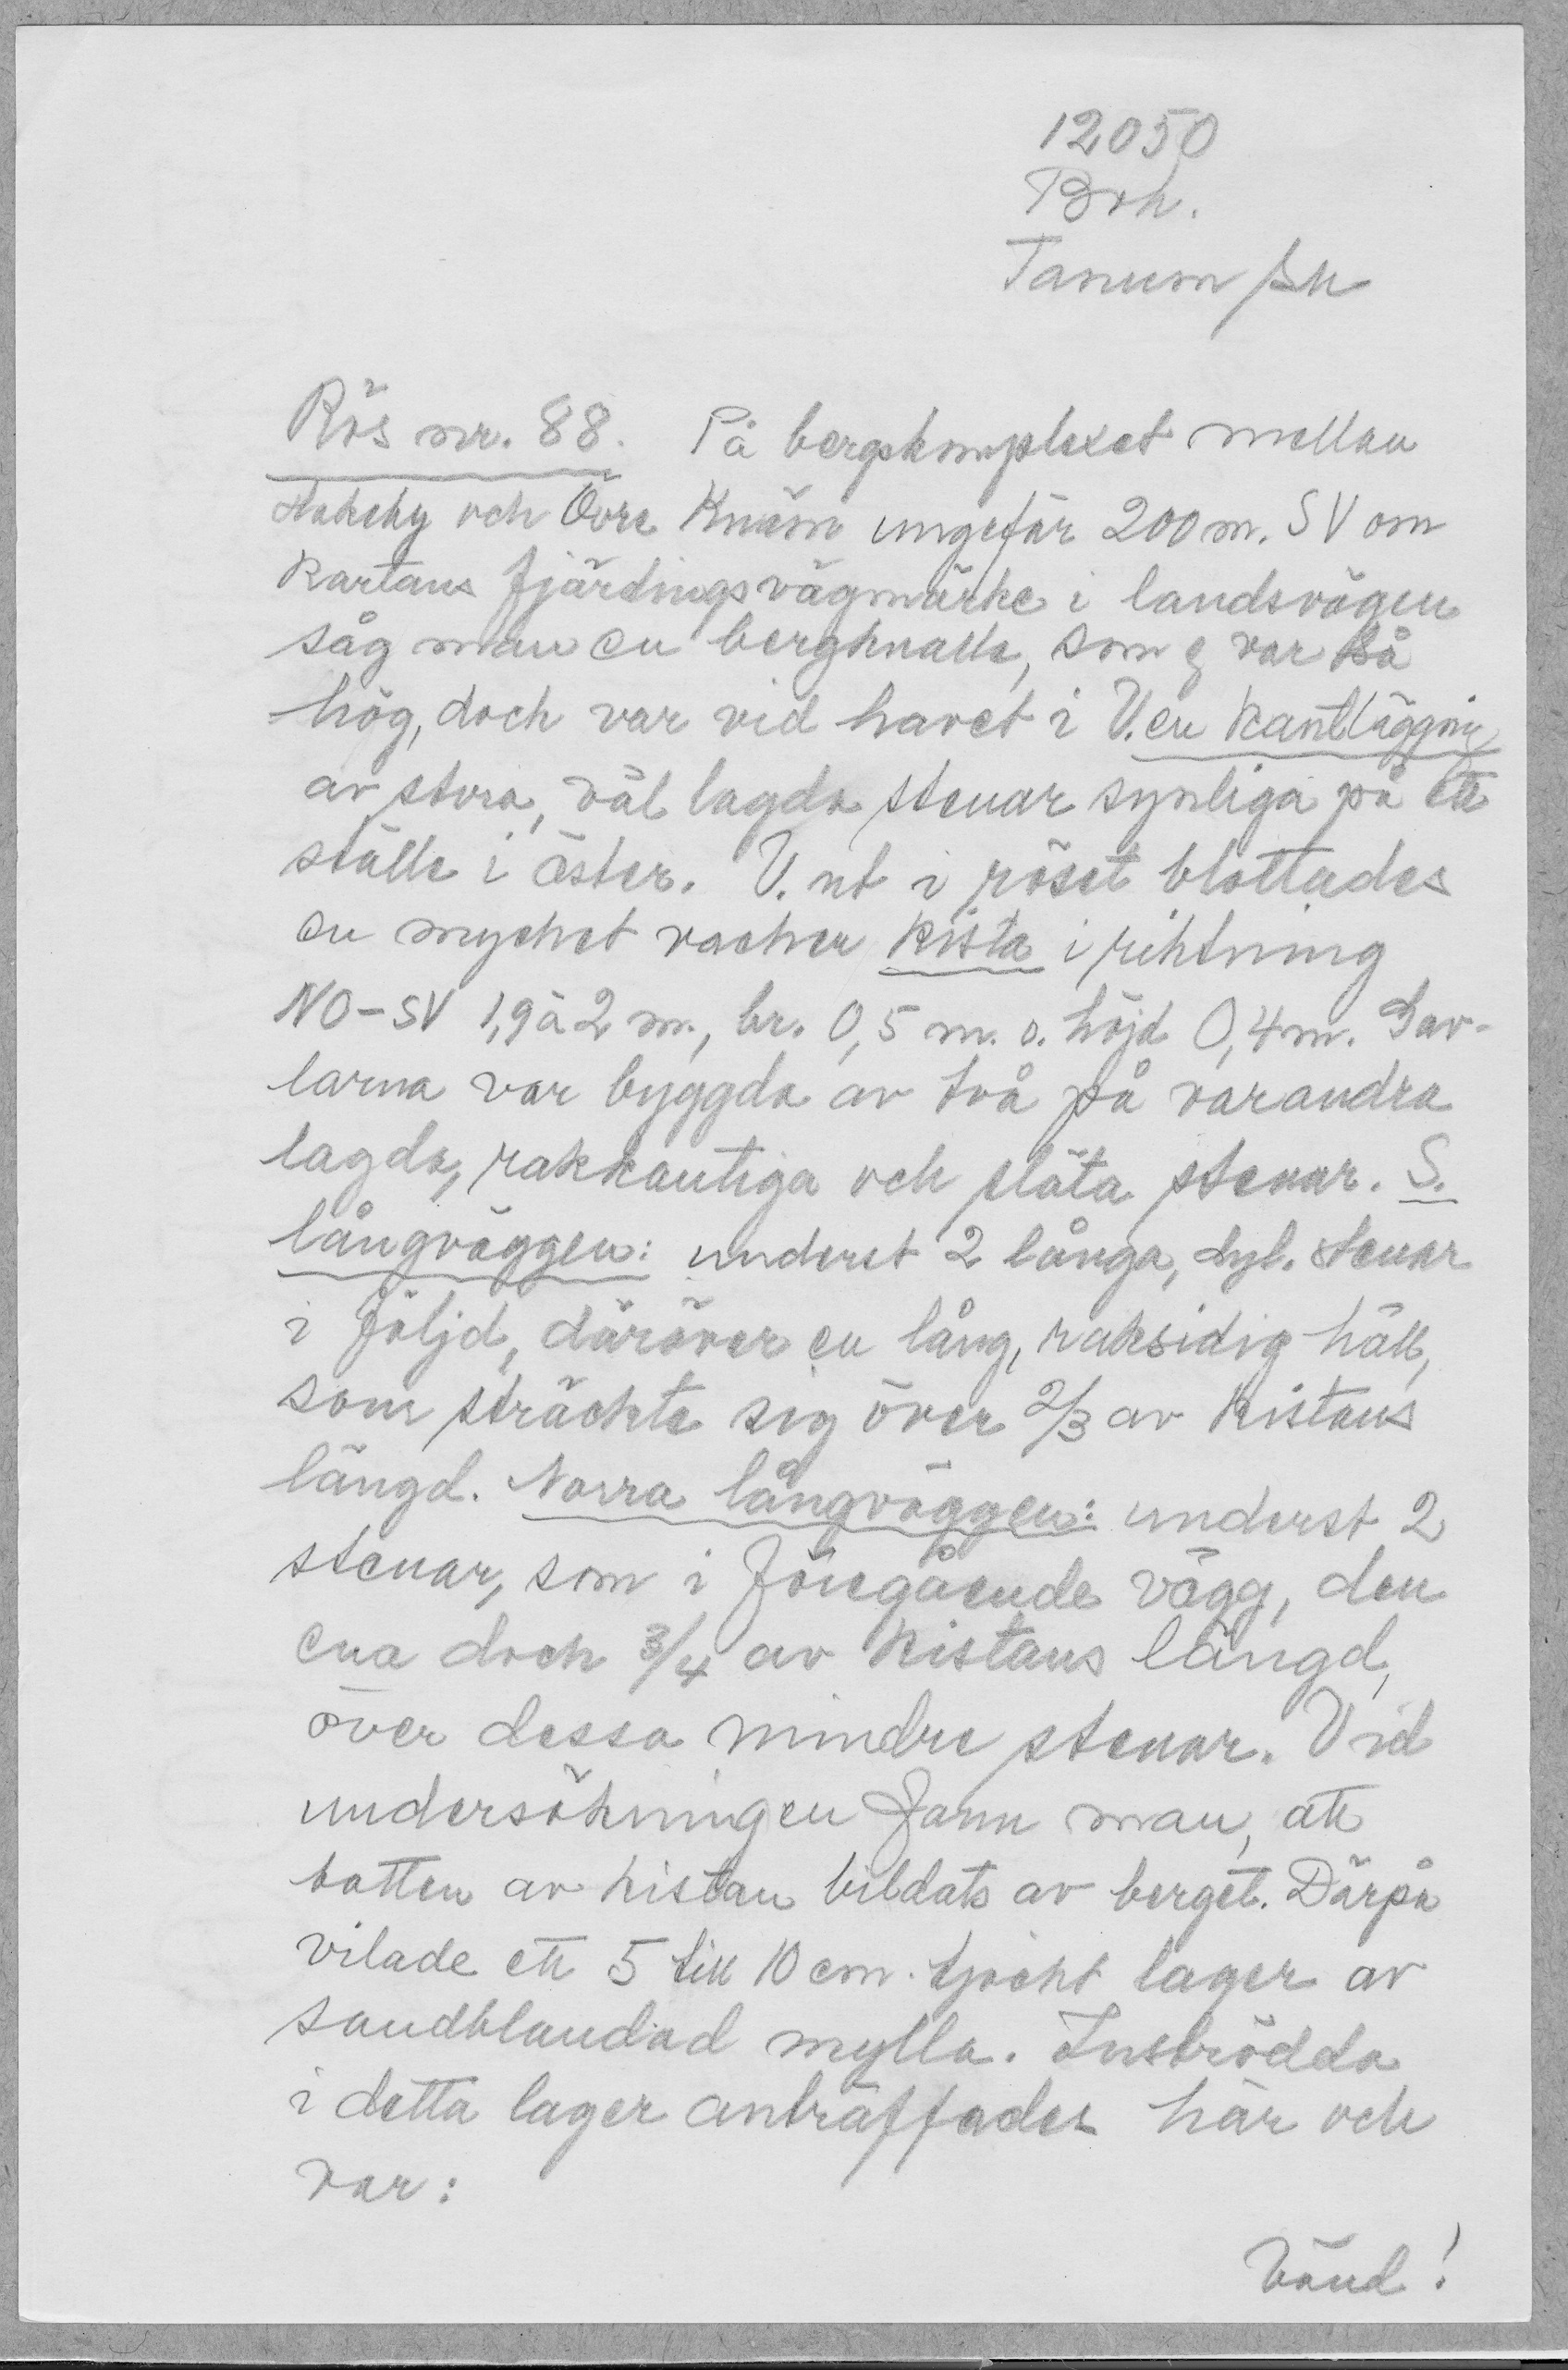 12050
Boh.
Tanum sn
Rös nr. 88. På bergskomplexet mellan
Hakeby och Övre Knäm ungefär 200 m. SV om
kartans fjärdingsvägmärke i landsvägen
såg man en bergknalle, som ej var så
hög, doch var vid havet i V. en kantlägg­ning
av stora, väl lagda stenar synliga på ett
ställe i öster. V. ut i röset blottades
en mychet vacher kista i rihtning
NO-SV 1,9 à 2 m., br. 0,5 m. o. höjd 0,4 m. Gav-
larna var byggda av två på varandra
lagda, rakkantiga och släta stenar. S.
långväggen: underst 2 långa, dyl. stenar
i följd, däröver en lång, raksidig häll,
som sträckte sig över 2/3 av kistans
längd. Norra långväggen: underst 2
stenar, som i föregående vägg, den
ena doch 3/4 av kistans längd,
över dessa mindre stenar. Vid
undersökningen fann man, att
botten av kistan bildats av berget. Därpå
vilade ett 5 till 10 cm. tjockt lager av
sandblandad mylla. Inströdda
i detta lager anträffades här och
var:
Vänd!